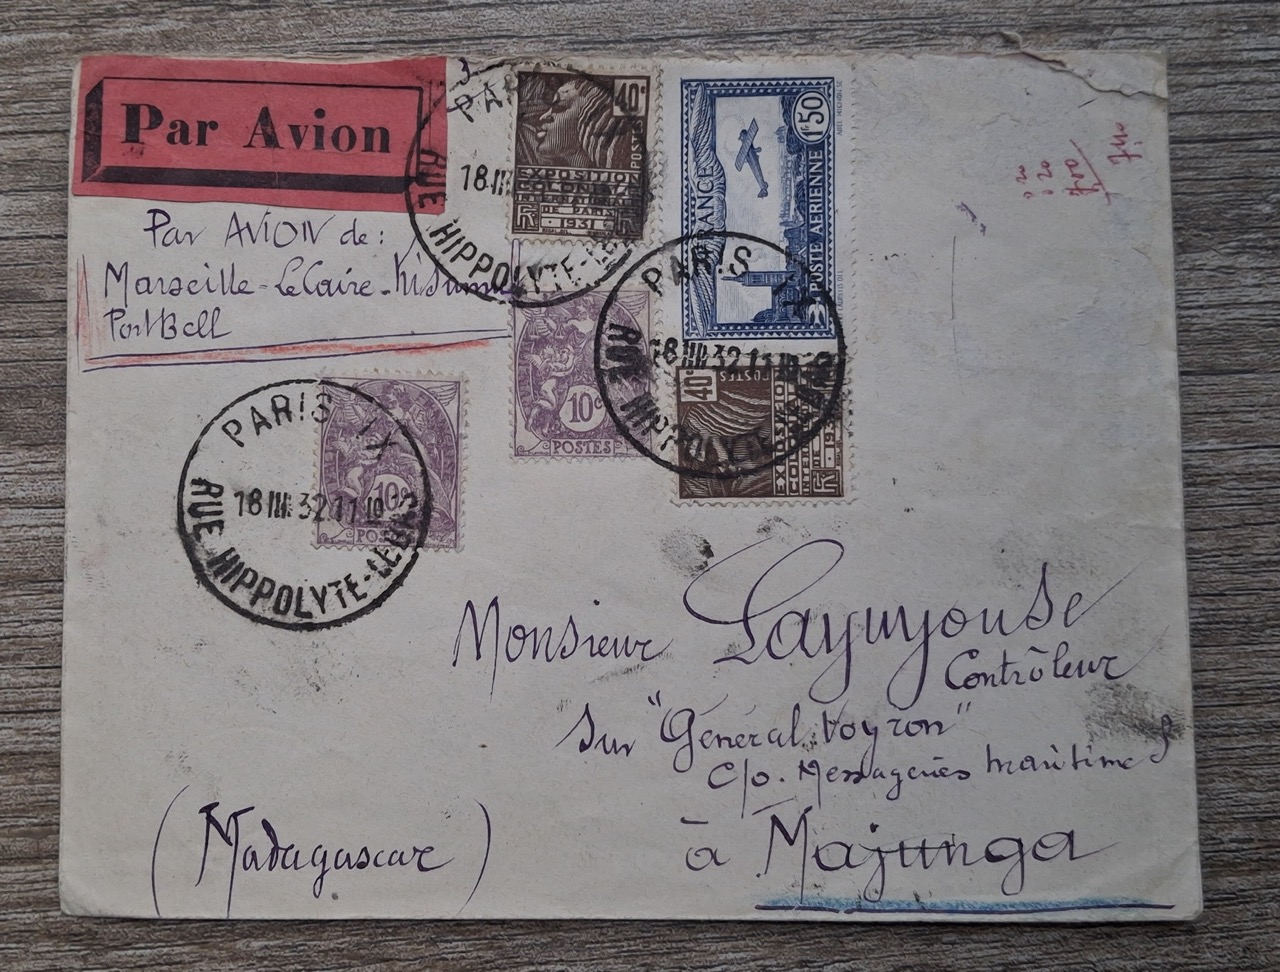 Par Avion
Par AVION de:
Marseille-LeCaire-Kisumu
PortBell
PARIS
18 III
RUE HIPPOLYTE-LE
40c
POSTES
EXPOSITION
COLONIALE
INTERNATIONALE
DE PARIS
1931
RF
1F50
POSTE AÉRIENNE
FRANCE
PARIS IX
18 III 32 11 10
RUE HIPPOLYTE-LEBAS
10c
POSTES
40c
POSTES
RF
PARIS IX
18 III 32 11 10
RUE HIPPOLYTE-LEBAS
10c
POSTES
Monsieur Layuyouse
Contrôleur
sur "Général Voyron"
c/o. Messageries Maritimes
à Majunga
(Madagascar)